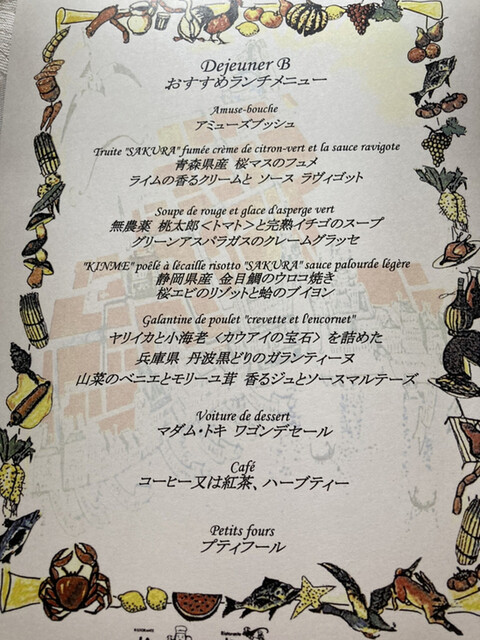 Dejeuner B
おすすめランチメニュー
Amuse-bouche
アミューズブッシュ
Truite "SAKURA" fumée crème de citron-vert et la sauce ravigote
青森県産 桜マスのフュメ
ライムの香るクリームと ソース ラヴィゴット
Soupe de rouge et glace d'asperge vert
無農薬 桃太郎<トマト>と完熟イチゴのスープ
グリーンアスパラガスのクレームグラッセ
"KINME" poêlé à lécaille risotto "SAKURA" sauce palourde légère
静岡県産 金目鯛のウロコ焼き
桜エビのリゾットと蛤のブイヨン
Galantine de poulet "crevette et l'encornet"
ヤリイカと小海老〈カウアイの宝石〉を詰めた
兵庫県 丹波黒どりのガランティーヌ
山菜のベニエとモリーユ茸 香るジュとソースマルテーズ
Voiture de dessert
マダム・トキ ワゴンデセール
Café
コーヒー又は紅茶、ハーブティー
Petits fours
プティフール